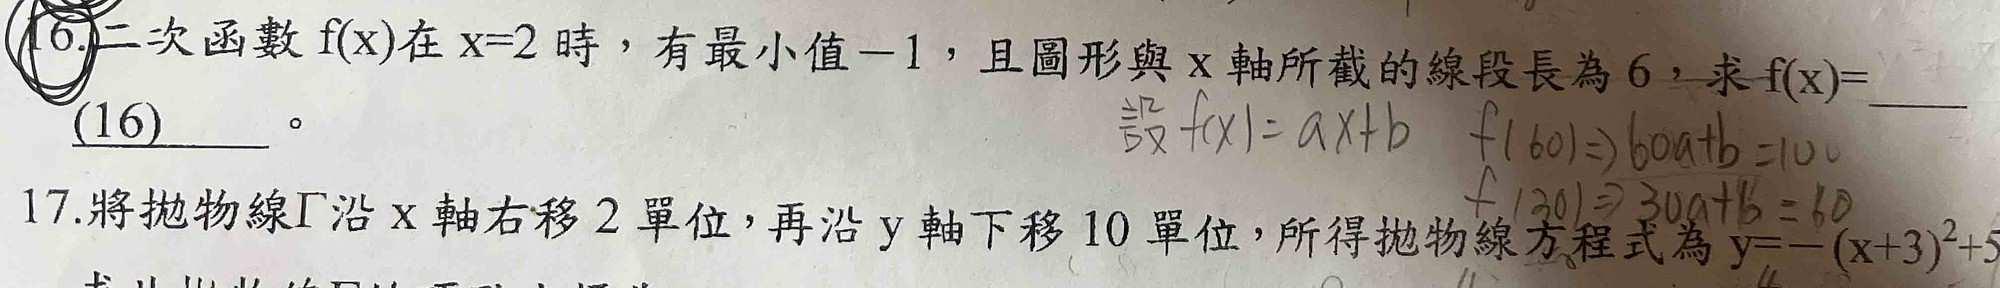 16.二次函數 f(x)在 x=2 時，有最小值－1，且圖形與 x 軸所截的線段長為 6，求 f(x)=____
(16)______。
設 f(x)=ax+b f(60)⇒60a+b=100
f(30)⇒30a+b=60
17.將拋物線Γ沿 x 軸右移 2 單位，再沿 y 軸下移 10 單位，所得拋物線方程式為 y=－(x+3)²+5